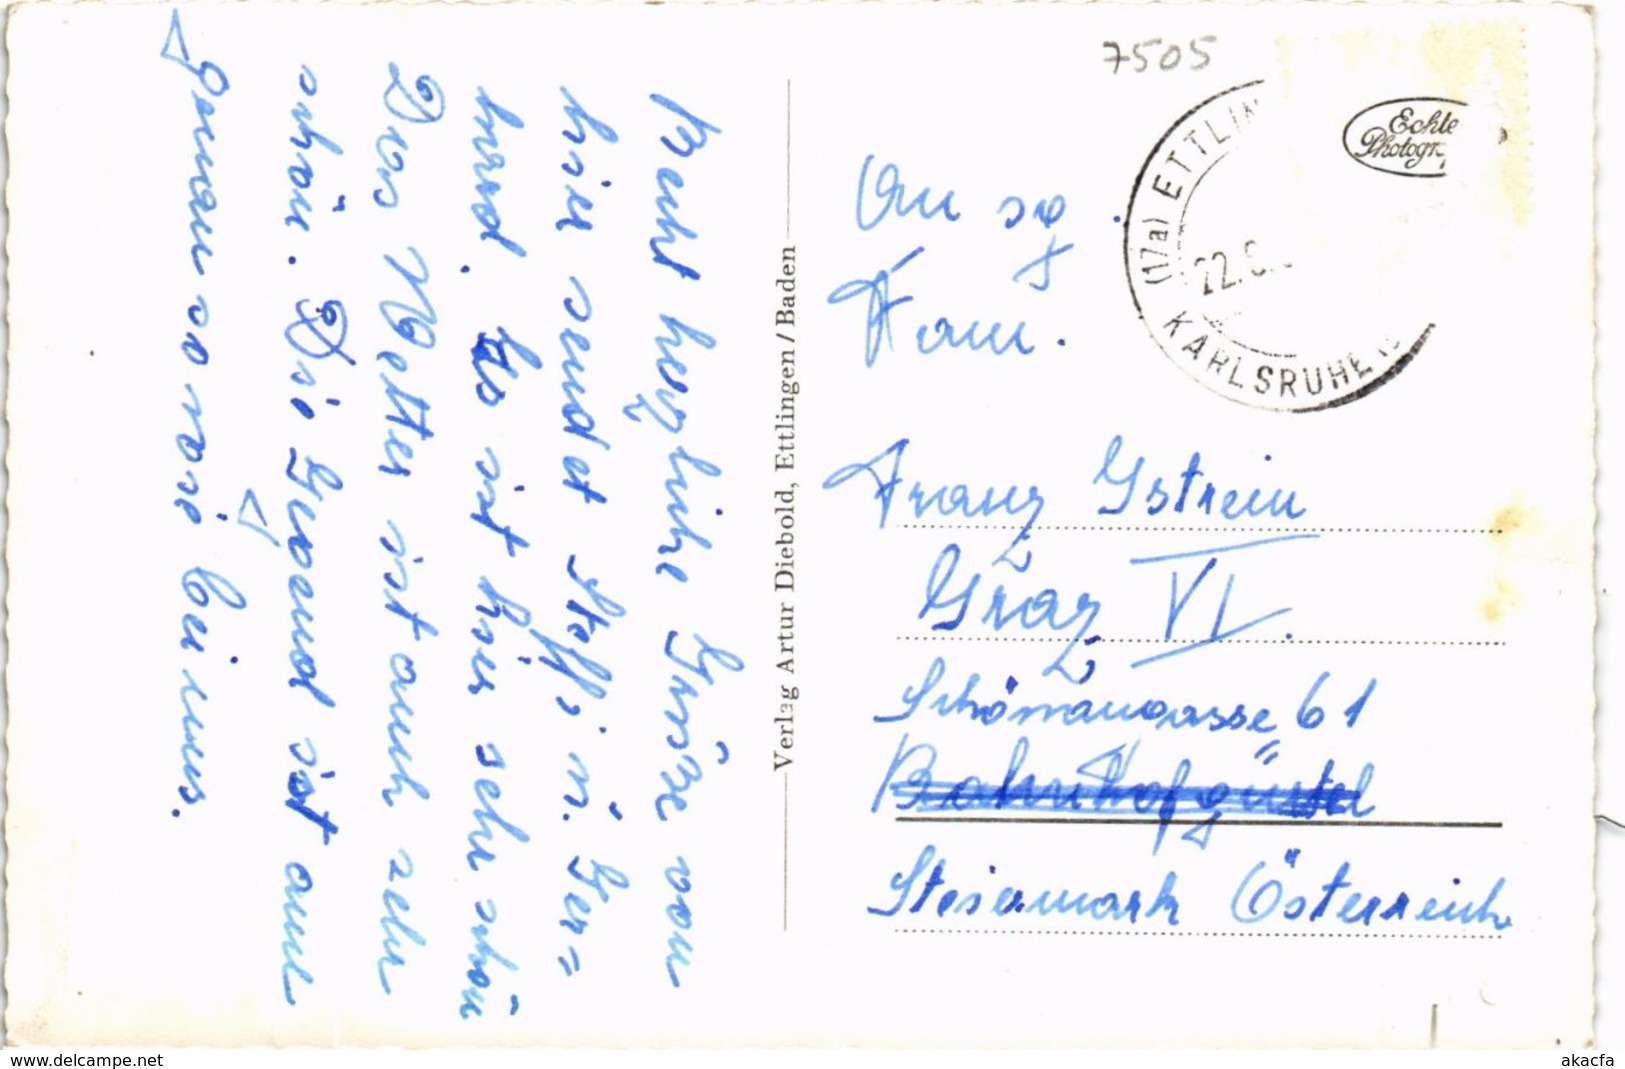 Recht herzliche Grüße von
hier sendet Steffi u. Ger=
hard. Es ist hier sehr schön
Das Wetter ist auch sehr
schön. Die Gegend ist am
genau so wie bei uns.
Verlag Artur Diebold, Ettlingen/Baden
7505
Echte
Photogr
(17a) ETTLIN
22.
KARLSRUHE
An
Fam.
Franz Gstrein
Graz VI.
Schönaugasse 61
Bahnhofgürtel
Steiermark Österreich
akacfa
www.delcampe.net